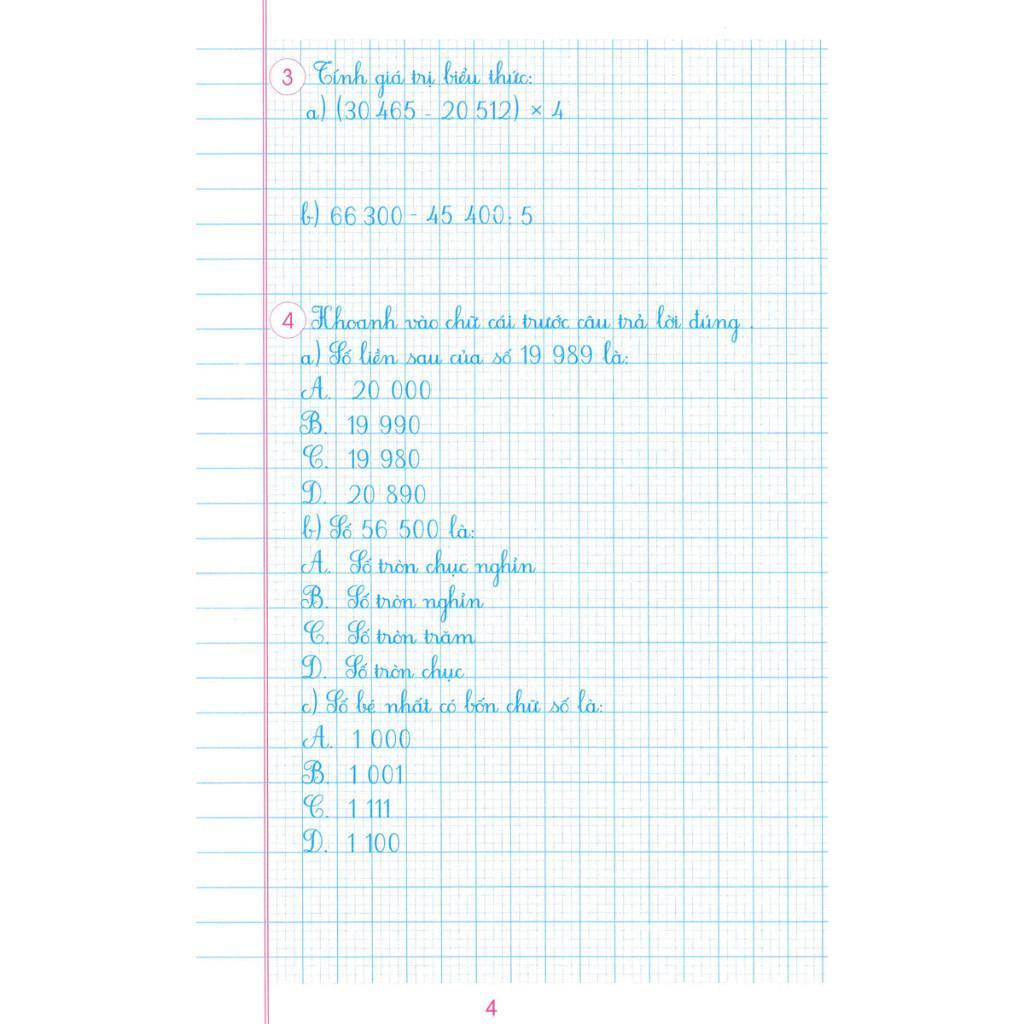 3 Tính giá trị biểu thức:
a) (30 465 - 20 512) × 4
b) 66 300 - 45 400 : 5
4 Khoanh vào chữ cái trước câu trả lời đúng.
a) Số liền sau của số 19 989 là:
A. 20 000
B. 19 990
C. 19 980
D. 20 890
b) Số 56 500 là:
A. Số tròn chục nghìn
B. Số tròn nghìn
C. Số tròn trăm
D. Số tròn chục
c) Số bé nhất có bốn chữ số là:
A. 1 000
B. 1 001
C. 1 111
D. 1 100
4